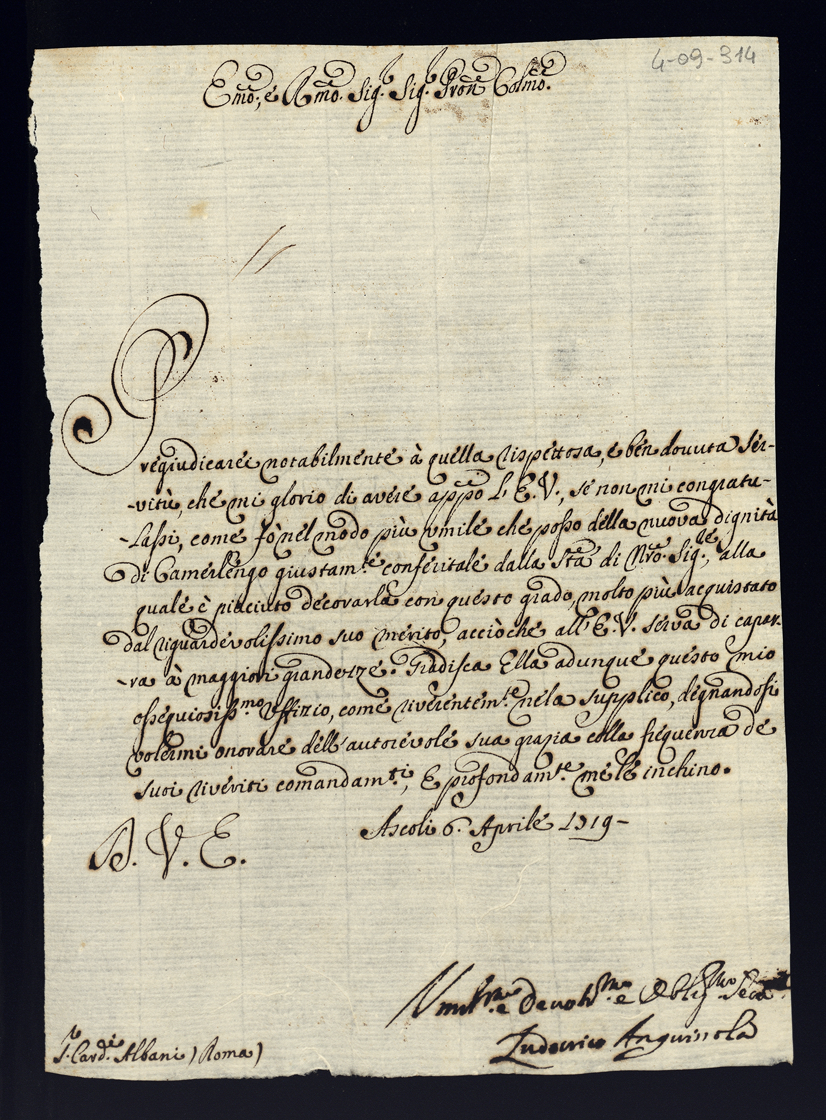 4-09-314
Emo., e Rmo. Sig.r Sig.r Pron Colmo.
Pregiudicarei notabilmente à quella rispettosa, e ben dovuta ser-
-vitù, che mi glorio di avere appo L'E.V., se non mi congratu-
-lassi, come fò nel modo più umile che posso della nuova dignità
di Camerlengo giustam.te conferitale dalla Stà di Nro. Sig.re, alla
quale è piaciuto decorarla con questo grado, molto più acquistato
dal riguardevolissimo suo merito, acciòche all'E.V. serva di capar-
-ra à maggiori grandezze. Gradisca Ella adunque questo mio
ossequiosiss.mo Uffizio, come riverentem.te nela supplico, degnandosi
volermi onorare dell'autorevole sua grazia colla frequenza de
suoi riveriti comandam.ti, e profondam.te mele inchino.
Ascoli 6. Aprile 1719-
D. V. E.
Umil.mo e Devot.mo e Oblig.mo
Ludovico Anguissola
S.r Card.l Albani) Roma)